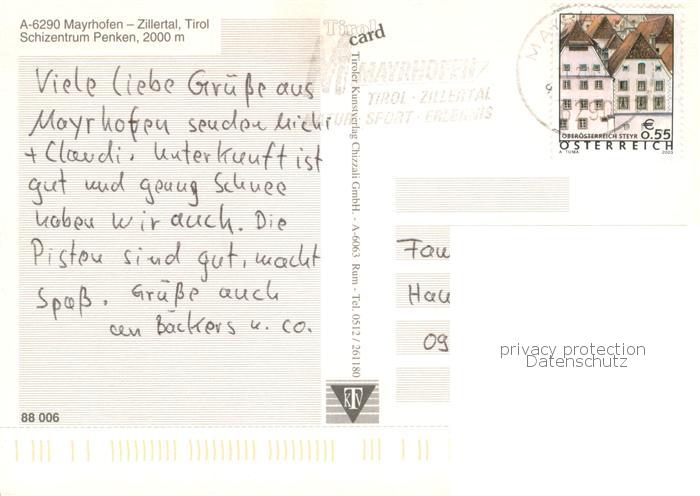 A-6290 Mayrhofen – Zillertal, Tirol
Schizentrum Penken, 2000 m
Viele liebe Grüße aus
Mayrhofen senden Michi
+ Claudi. Unterkunft ist
gut und genug Schnee
haben wir auch. Die
Pisten sind gut, macht
Spaß. Grüße auch
an Bäckers u. co.
88 006
Tirol
card
Tiroler Kunstverlag Chizzali GmbH. - A-6063 Rum - Tel. 0512 / 261180
KTV
MAYRHOFEN
TIROL · ZILLERTAL
NATUR · SPORT · ERLEBNIS
6290
€
0.55
OBERÖSTERREICH STEYR
A. TUMA 2003
ÖSTERREICH
Fam
Hau
09
privacy protection
Datenschutz